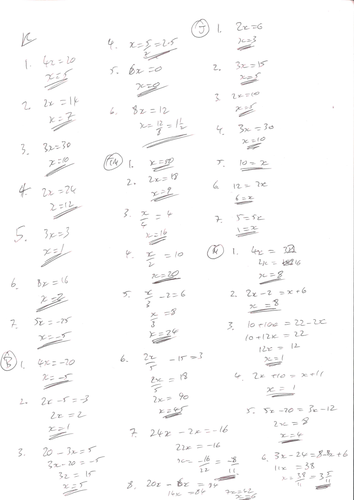 1. 4x = 20
x = 5
2. 2x = 14
x = 7
3. 3x = 30
x = 10
4. 2x = 24
x = 12
5. 3x = 3
x = 1
6. 8x = 16
x = 2
7. 5x = -25
x = -5
B 1. 4x = -20
x = -5
2. 2x - 5 = -3
2x = 2
x = 1
3. 20 - 3x = 5
3x - 20 = -5
3x = 15
x = 5
4. x = 5/2 = 2.5
5. 8x = 0
x = 0
6. 8x = 12
x = 12/8 = 1 1/2
1. x = 10
2. 2x = 18
x = 9
3. x/4 = 4
x = 16
4. x/2 = 10
x = 20
5. x/3 - 2 = 6
x/3 = 8
x = 24
6. 2x/5 - 15 = 3
2x/5 = 18
2x = 90
x = 45
7. 24x - 2x = -16
22x = -16
x = -16/22 = -8/11
J 1. 2x = 6
x = 3
2. 3x = 15
x = 5
3. 2x = 10
x = 5
4. 3x = 30
x = 10
5. 10 = x
6. 12 = 2x
6 = x
7. 5 = 5x
1 = x
1. 4x =
x = 8
2. 2x - 2 = x + 6
x = 8
3. 10 + 10x = 22 - 2x
10 + 12x = 22
12x = 12
x = 1
4. 2x + 10 = x + 11
x = 1
5. 5x - 20 = 3x - 12
2x = 8
x = 4
6. 3x - 24 =
11x = 38
x = 38/11 = 3 5/11